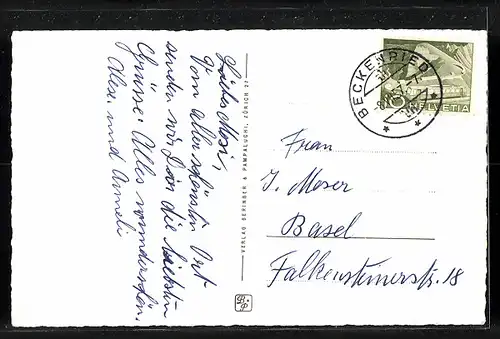 Liebe Mosi,
Vom allerschönsten Ort
senden wir Dir die liebsten
Grüsse. Alles wunderschön.
Alex. und Anneli
VERLAG BERINGER & PAMPALUCHI, ZÜRICH
BECKENRIED
HELVETIA
Frau
J. Moser
Basel
Falkensteinerstr. 18
B+P